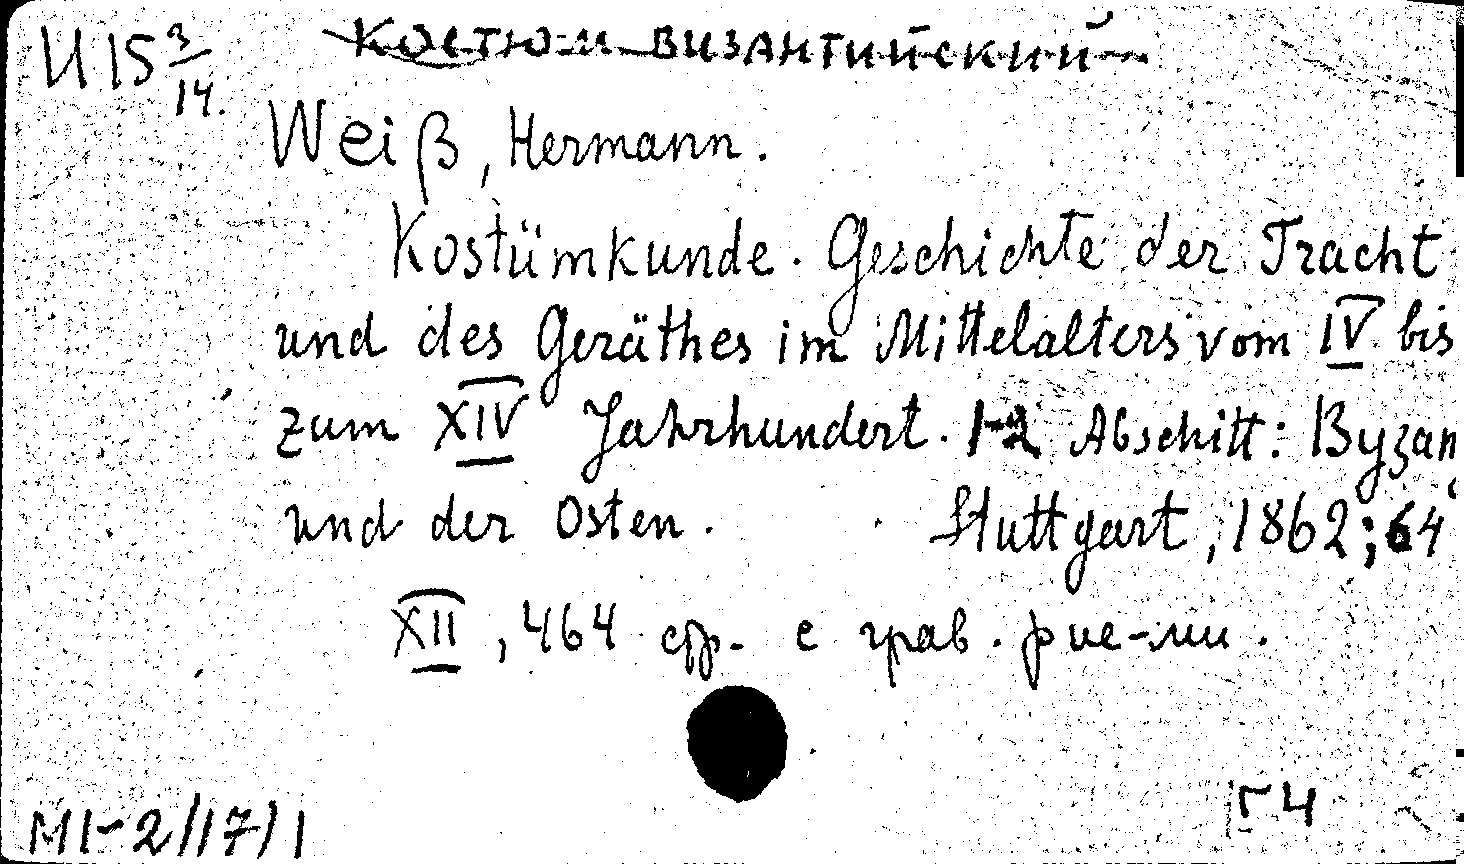 И 15 3/14.
Костюм византийский
Weiß, Hermann.
Kostümkunde. Geschichte der Tracht
und des Geräthes im Mittelalters vom IV bis
zum XIV Jahrhundert. 1-2 Abschitt: Byzan
und der Osten. Stuttgart, 1862; 64
XII, 464 стр. с грав. рис-ми.
MI-2/17/1
Г4